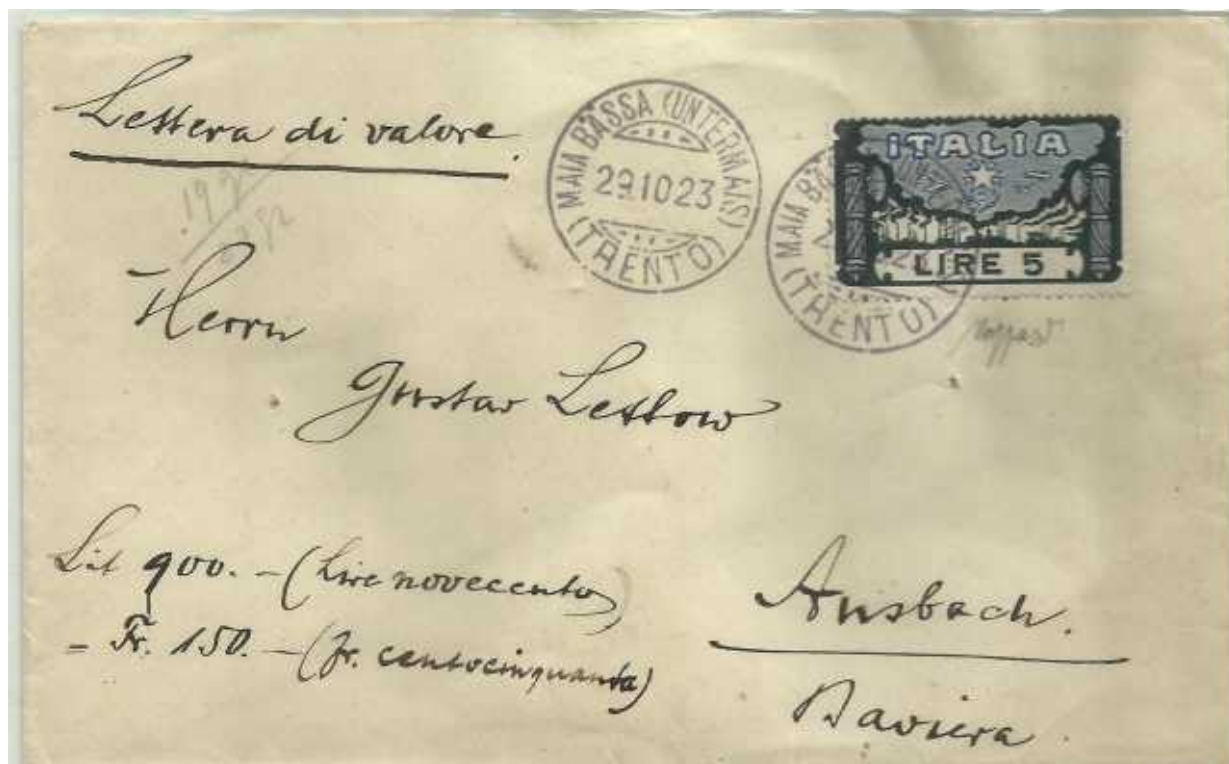 Lettera di valore.
MAIA BASSA (UNTERMAIS)
29.10.23
(TRENTO)
ITALIA
LIRE 5
MAIA BA
(TRENTO)
Herrn
Gustav Lettow
Lit 900. - (Lire novecento)
= Fr. 150. - (fr. centocinquanta)
Ansbach.
Baviera